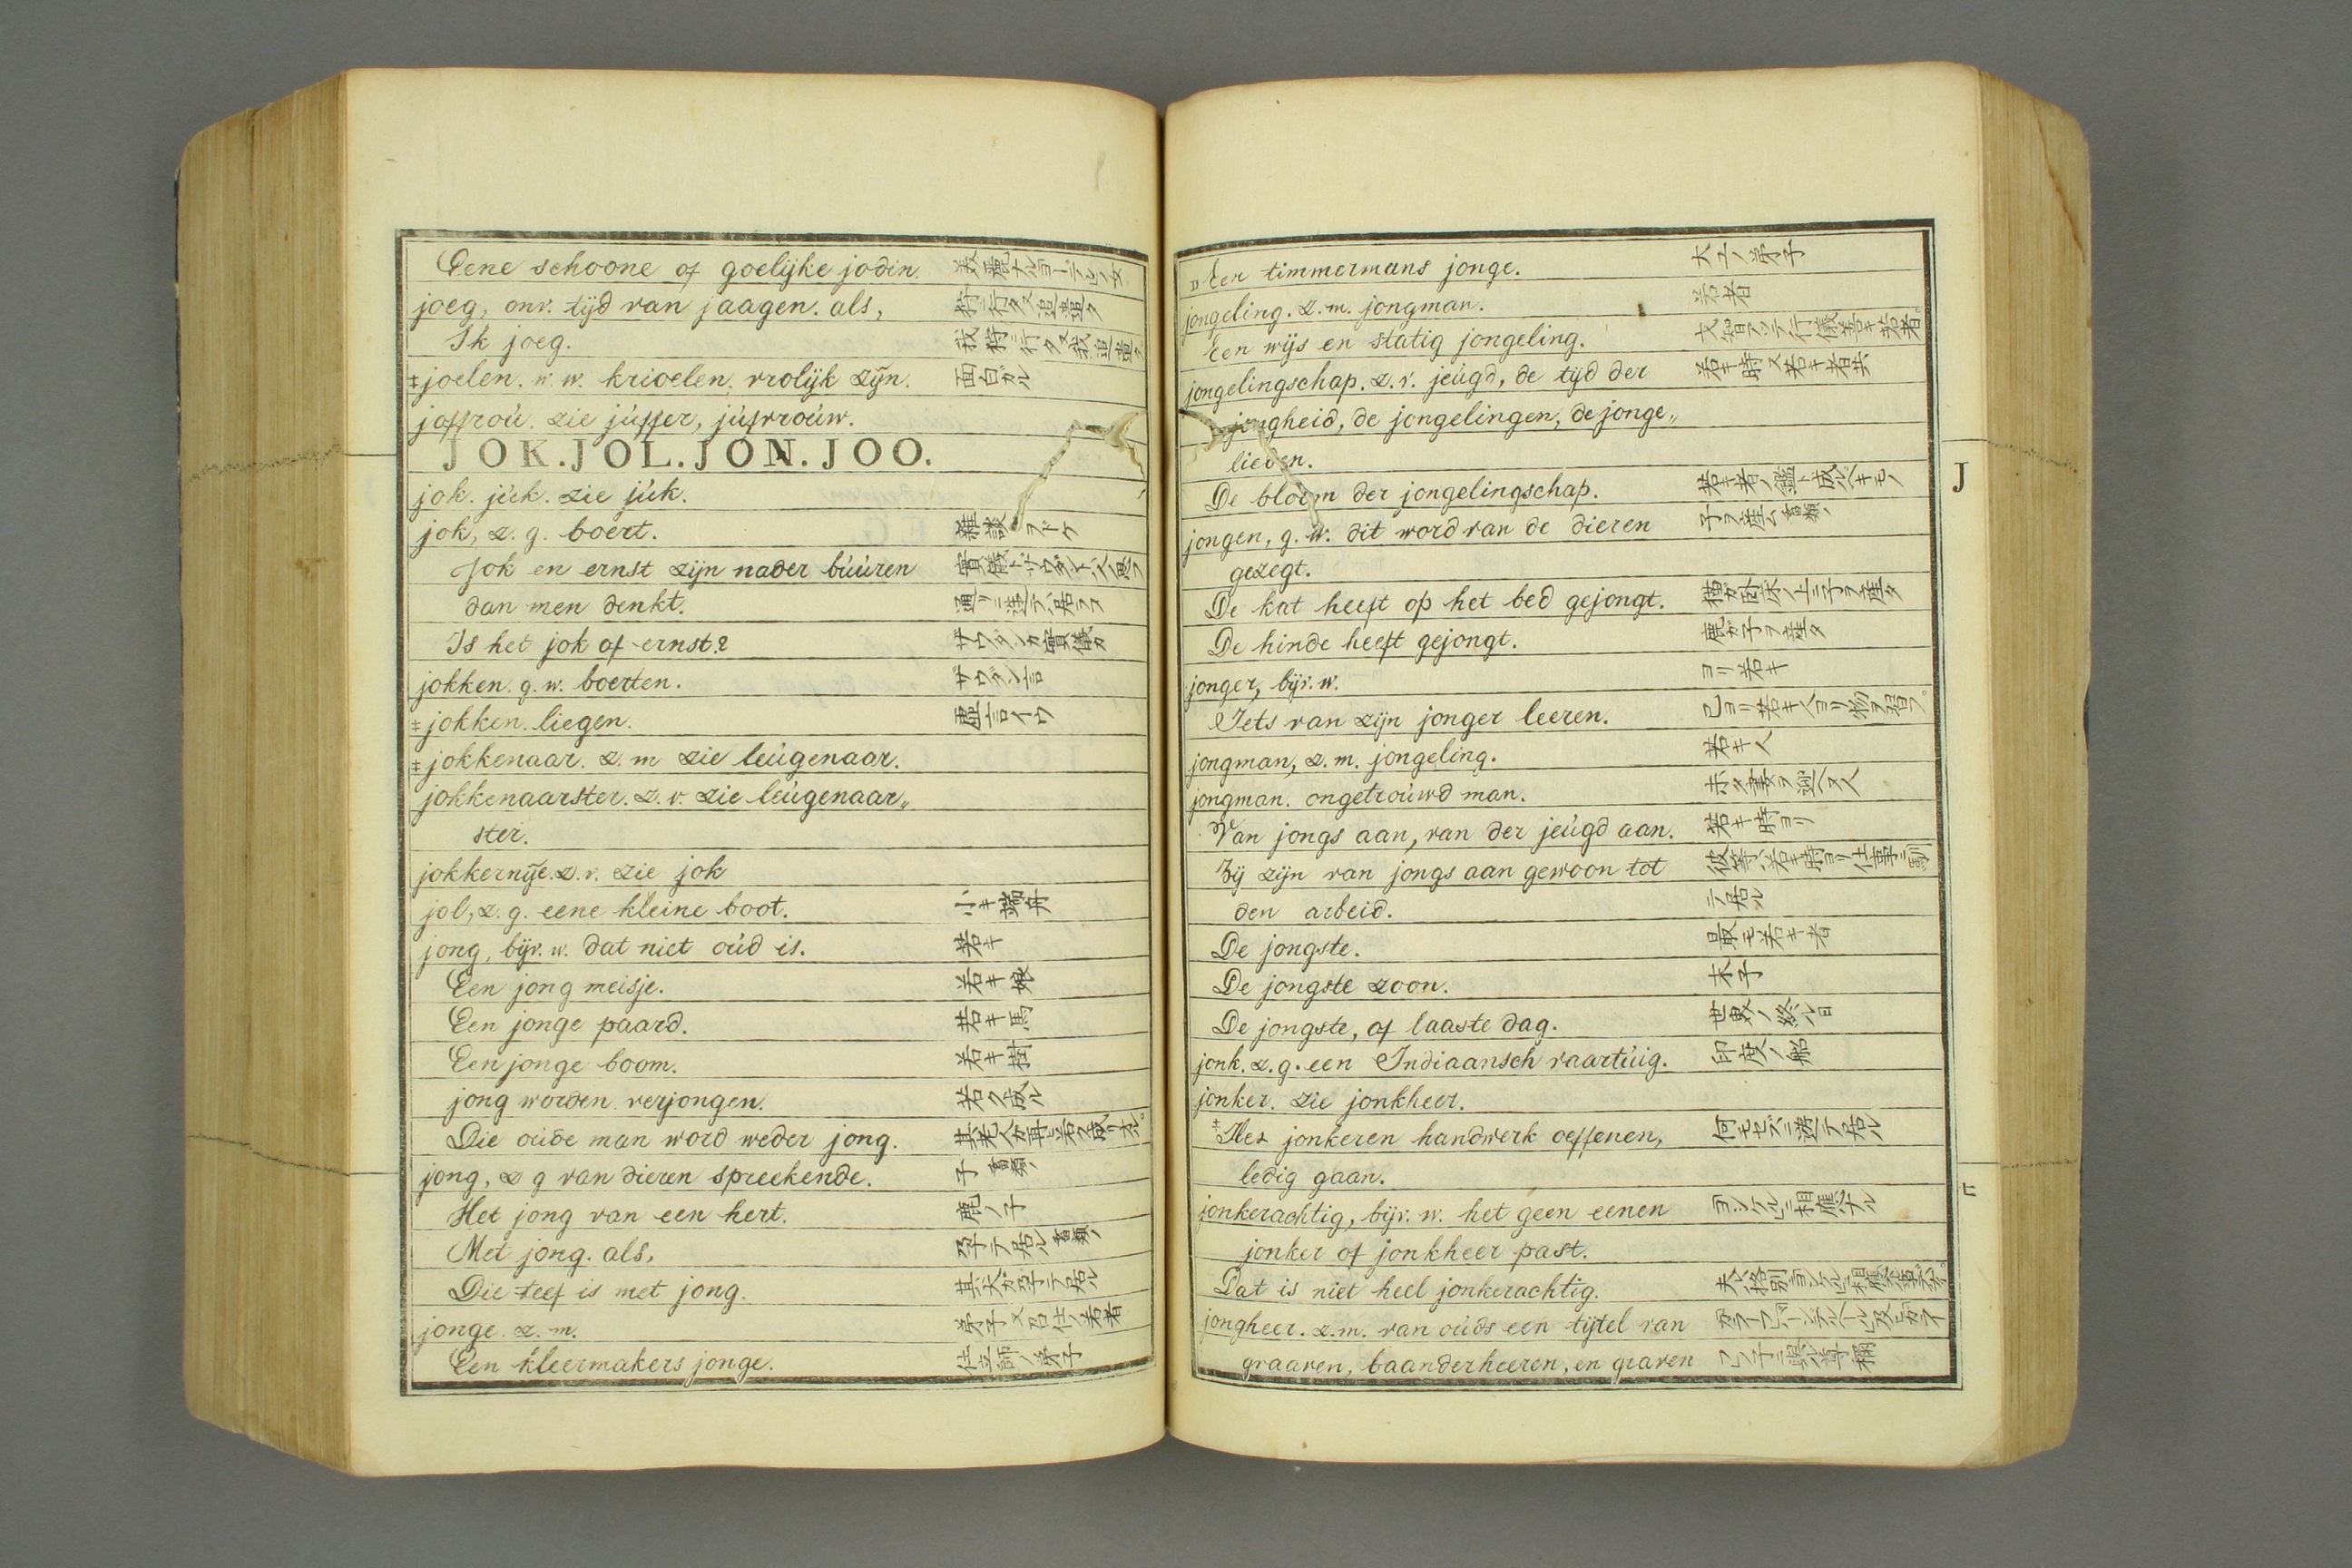 Eene schoone of goelijke jodin. 美麗ナルヨーデレノ女
joeg, onv. tijd van jaagen. als, 狩ニ行タ又追蓋タ
Ik joeg. 我狩ニ行タ又我追蓋タ
‡joelen. w. w. krioelen, vrolijk zijn. 面白ガル
joffroú. zie júffer, júfvroúw.
JOK. JOL. JON. JOO.
jok. júk. zie júk.
jok, z. g. boert. 雜談 ヲドケ
Jok en ernst zijn nader búúren
dan men denkt.
Is het jok of ernst? ザウダンカ實儀カ
jokken. g. w. boerten. ザウダン言
‡jokken. liegen. 虚言イウ
‡jokkenaar. z. m zie leúgenaar.
jokkenaarster. z. v. zie leúgenaar„
ster.
jokkernije. z. v. zie jok
jol, z. g. eene kleine boot. 小キ端舟
jong, bijv. w. dat niet oúd is. 若キ
Een jong meisje. 若キ娘
Een jonge paard. 若キ馬
Een jonge boom. 若キ樹
jong worden. verjongen. 若ク成ル
Die oúde man word weder jong. 其老人カ再ヒ若ク成リタル
jong, z g van dieren spreekende. 子 畜類ノ
Het jong van een hert. 鹿ノ子
Met jong. als, 孕テ居ル 畜類ノ
Die teef is met jong. 其犬ガ孕テ居ル
jonge. z. m. 弟子又召仕ノ若者
Een kleermakers jonge. 仕立師ノ弟子
„Een timmermans jonge. 大工ノ弟子
jongeling. z. m. jongman. 若者
Een wijs en statig jongeling.
jongelingschap. z. v. jeúgd, de tijd der 若キ時又若キ者共
jongheid, de jongelingen, de jonge„
lieden.
De bloem der jongelingschap. 若キ者ノ鑑ト成ルベキモノ
jongen, g. w. dit word van de dieren 子ヲ産ム 畜類ノ
gezegt.
De kat heeft op het bed gejongt. 猫ガ臥床ノ上ニ子ヲ産タ
De hinde heeft gejongt. 鹿ガ子ヲ産タ
jonger, bijv. w. ヨリ若キ
Iets van zijn jonger leeren. 己ヨリ若キ人ヨリ物ヲ習フ。
jongman, z. m. jongeling. 若キ人
jongman. ongetroúwd man. 未タ妻ヲ迎ヘヌ人
Van jongs aan, van der jeúgd aan. 若キ時ヨリ
Zij zijn van jongs aan gewoon tot 彼等ハ若キ時ヨリ仕事ニ馴
den arbeid. テ居ル
De jongste. 最モ若キ者
De jongste zoon. 末子
De jongste, of laaste dag. 世界ノ終ル日
jonk. z. g. een Indiaansch vaartúig. 印度ノ船
jonker. zie jonkheer.
‡Het jonkeren handwerk oeffenen, 何モセズニ遊テ居ル
ledig gaan.
jonkerachtig, bijv. w. het geen eenen ヨンケルニ相應ナル
jonker of jonkheer past.
Dat is niet heel jonkerachtig.
jongheer. z. m. van oúds een tijtel van
graaven, baanderheeren, en graven
J